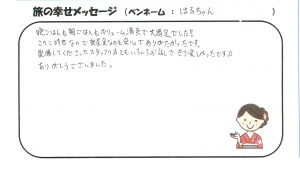 旅の幸せメッセージ （ペンネーム ： はるちゃん ）
晩ごはんも朝ごはんもボリューム満点で大満足でした!!
このご時世なので お部屋食なのも安心で ありがたかったです。
配膳してくださったスタッフの方ともいろいろお話しできて楽しかったです♪♪
ありがとうございました。